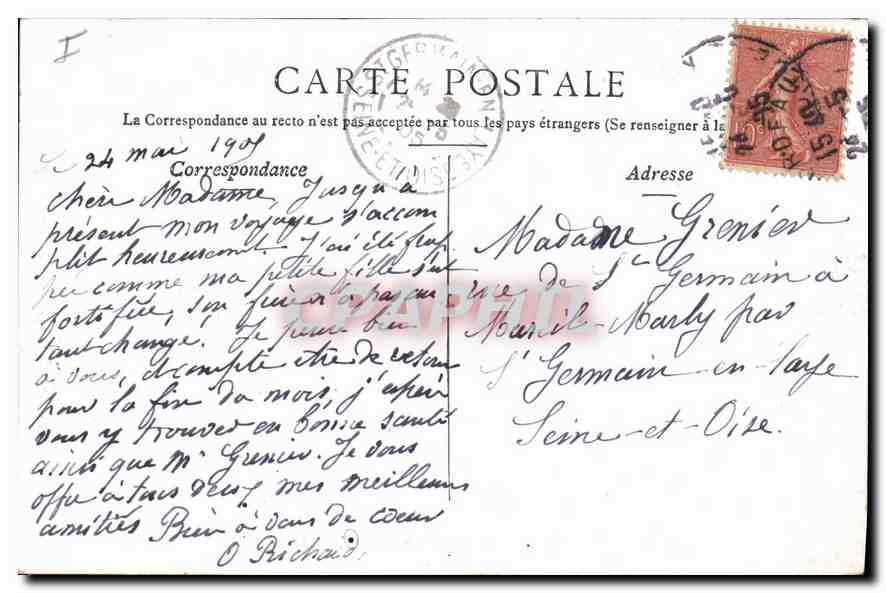 I
CARTE POSTALE
La Correspondance au recto n'est pas acceptée par tous les pays étrangers (Se renseigner à la
Correspondance
Adresse
ST GERMAIN-EN-
SEINE-ET-OISE
24 mai 1905
Chère Madame, Jusqu'à
présent mon voyage s'accom
plit heureusement. J'ai été frap
pée comme ma petite fille s'est
fortifiée, son frère n'a pas au
tant changé. Je pense bien
à vous, et compte être de retour
pour la fin du mois, j'espère
vous y trouver en bonne santé
ainsi que Mr Grenier. Je vous
offre à tous deux mes meilleures
amitiés Bien à vous de cœur
O Richard
Madame Grenier
rue de St Germain à
Mareil-Marly par
St Germain-en-Laye
Seine-et-Oise.
CPAPHIL